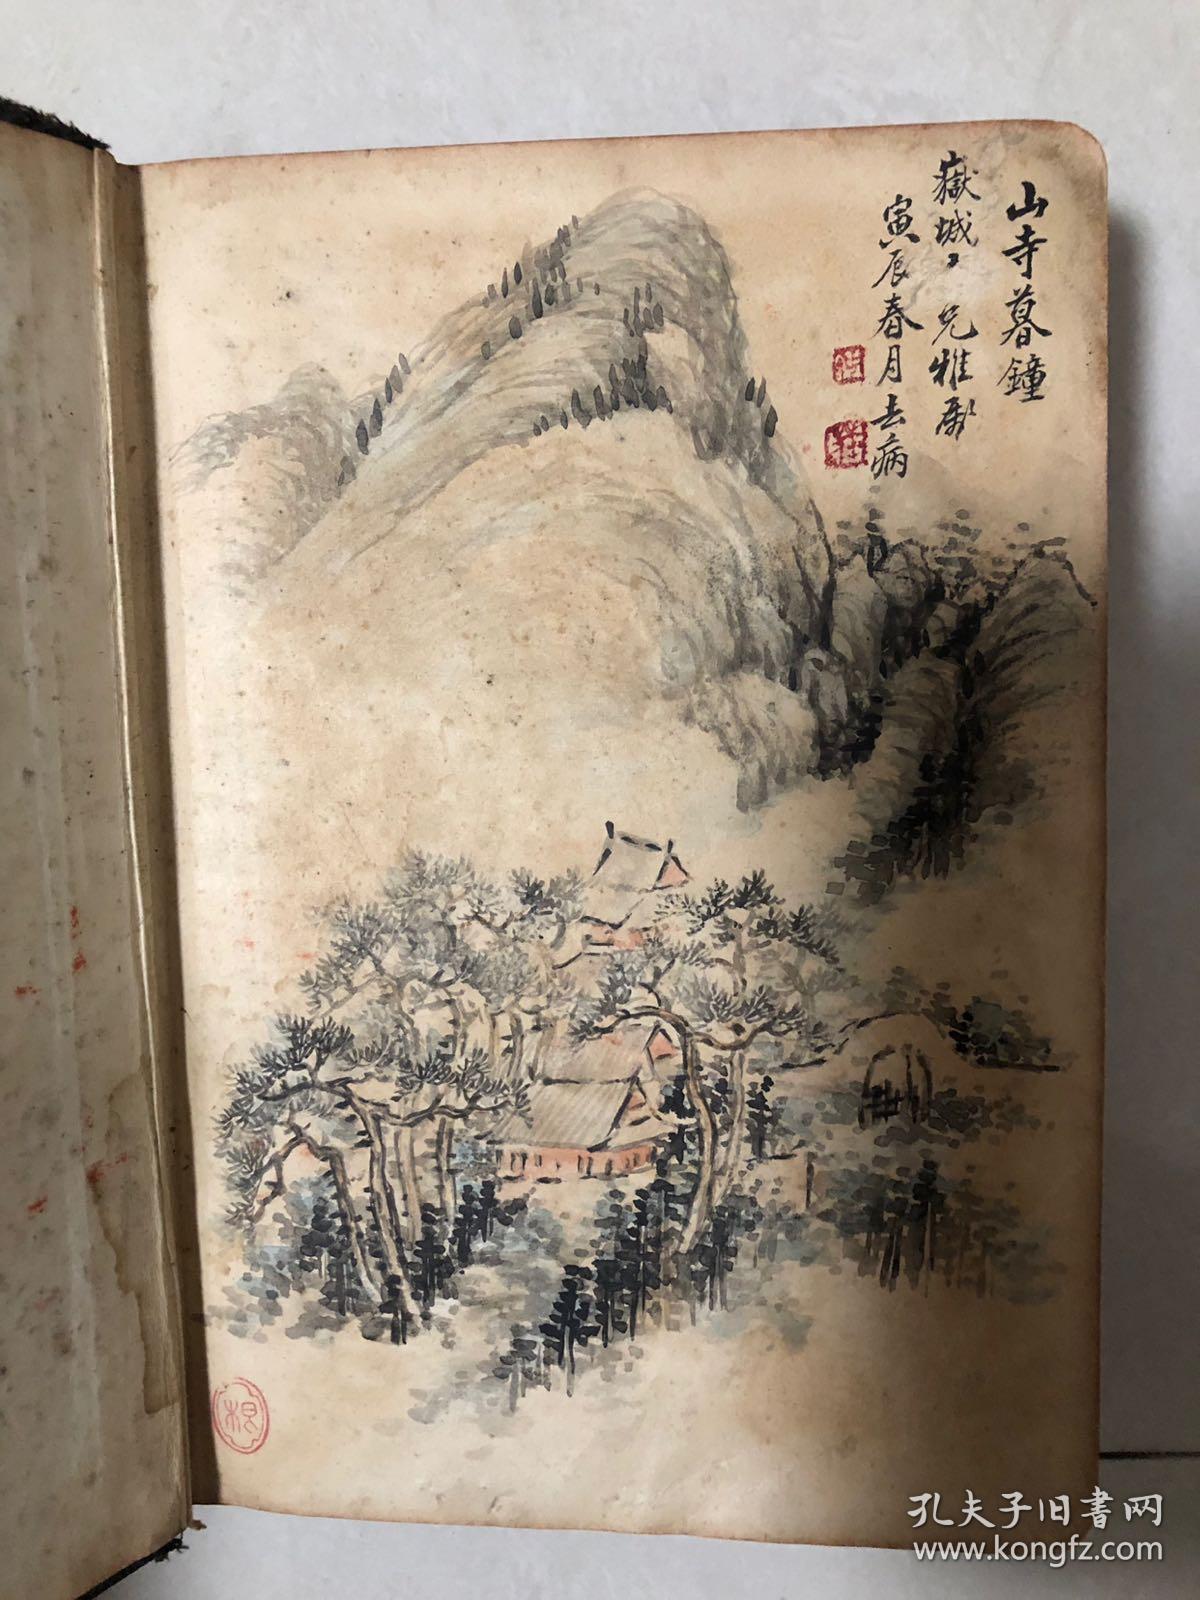 山寺暮鐘
嶽城 兄雅屬
寅辰春月去病
孔夫子旧书网
www.kongfz.com